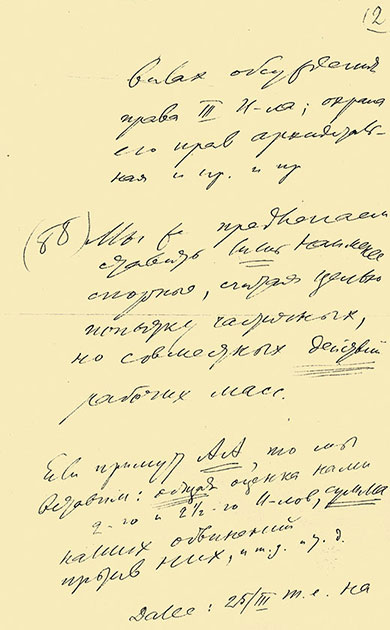 12
виях обсуждения
права III И-ла; охрана
его прав арбитраж-
ная и пр. и пр
(ββ) Мы бы предпочитаем
ставить лишь наименее
спорные, считая целью
попытку частичных,
но совместных действий
рабочих масс.
Если примут АА, то мы
вставим: общая оценка нами
2-го и 2½-го И-лов, сумма
наших обвинений
против них, и т.д. и т.д.
Далее: 25/III т.е. на